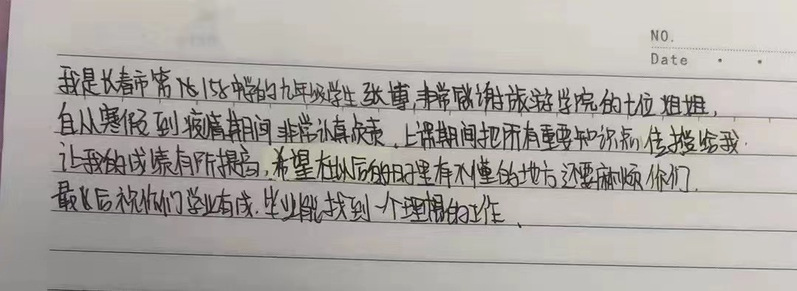 NO.
Date
我是长春市第158中学的九年级学生张博,非常感谢旅游学院的七位姐姐,
自从寒假到疫情期间非常认真负责,上课期间把所有重要知识点传授给我.
让我的成绩有所提高,希望在以后的日子里有不懂的地方还要麻烦你们.
最后祝你们学业有成.毕业能找到一个理想的工作.